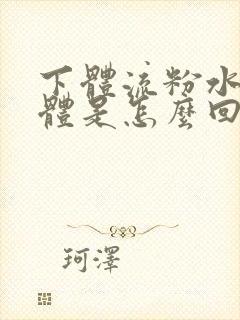 下體流粉水
體是怎麼回
珂澤